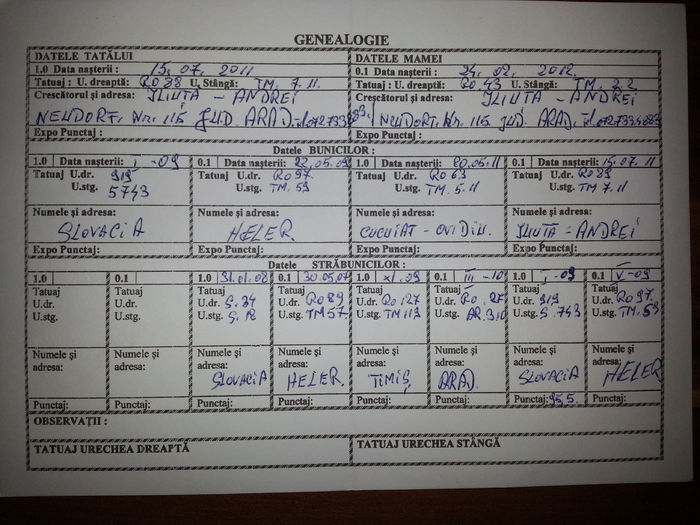 GENEALOGIE
DATELE TATĂLUI
DATELE MAMEI
1.0 Data nașterii : 15. 07. 2011
0.1 Data nașterii : 24. 02. 2012.
Tatuaj : U. dreaptă: RO 88 U. Stângă: TM. 7. 11.
Tatuaj : U. dreaptă: RO. 43 U. Stângă: TM. 2.2
Crescătorul și adresa: ILIUȚA - ANDREI
Crescătorul și adresa: ILIUȚA - ANDREI
NEUDORF, Nr. 115 JUD. ARAD,
NEUDORF, Nr. 115 JUD. ARAD,
Expo Punctaj :
Expo Punctaj :
Datele BUNICILOR :
1.0 Data nașterii: I -09 0.1 Data nașterii: 22.05.09 1.0 Data nașterii: 20.05.11 0.1 Data nașterii: 15.07.11
Tatuaj U.dr. 919 Tatuaj U.dr. RO 97. Tatuaj U.dr. RO 63 Tatuaj U.dr. RO 89
U.stg. 5743 U.stg. TM. 59 U.stg. TM. 5.11 U.stg. TM 7.11
Numele și adresa: Numele și adresa: Numele și adresa: Numele și adresa:
SLOVACIA HELER. CUCUIAT - OVIDIU. ILIUȚĂ - ANDREI
Expo Punctaj: Expo Punctaj: Expo Punctaj: Expo Punctaj:
Datele STRĂBUNICILOR :
1.0 0.1 1.0 31.01.08 0.1 30.05.07 1.0 XI. 09 0.1 III -10 1.0 I -09 0.1 V -09
Tatuaj Tatuaj Tatuaj Tatuaj Tatuaj Tatuaj Tatuaj Tatuaj
U.dr. U.dr. U.dr. S. 34 U.dr. RO 89 U.dr. RO 127 U.dr. RO. 27 U.dr. 919 U.dr. RO 97
U.stg. U.stg. U.stg. S. 12 U.stg. TM 57 U.stg. TM 119 U.stg. AR. 310 U.stg. S. 743 U.stg. TM. 59
Numele și Numele și Numele și Numele și Numele și Numele și Numele și Numele și
adresa: adresa: adresa: adresa: adresa: adresa: adresa: adresa:
SLOVACIA HELER. TIMIȘ ARAD. SLOVACIA HELER
Punctaj: Punctaj: Punctaj: Punctaj: Punctaj: Punctaj: Punctaj: 95,5. Punctaj:
OBSERVAȚII :
TATUAJ URECHEA DREAPTĂ
TATUAJ URECHEA STÂNGĂ